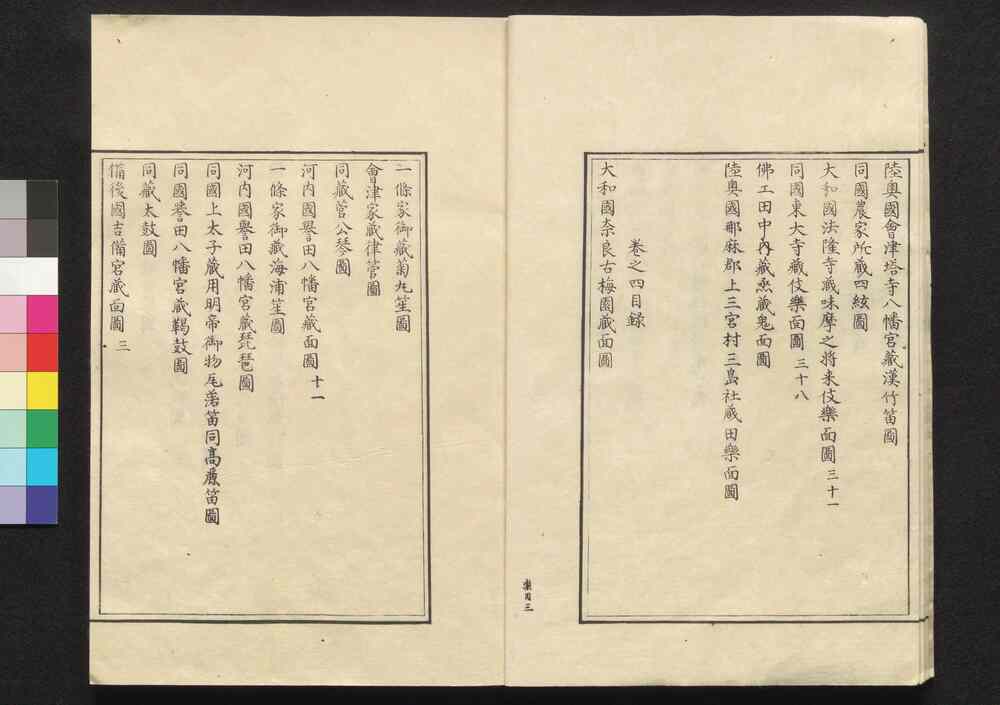 陸奥國會津塔寺八幡宮藏漢竹笛圖
同國農家所藏四絃圖
大和國法隆寺藏味摩之将来伎樂面圖 三十一
同國東大寺藏伎樂面圖 三十八
佛工田中内藏烝藏鬼面圖
陸奥國耶麻郡上三宮村三島社藏田樂面圖
卷之四目録
大和國奈良古梅園藏面圖
樂目三
一條家御藏菊丸笙圖
會津家藏律管圖
同藏菅公琴圖
河内國譽田八幡宮藏面圖 十一
一條家御藏海浦笙圖
河内國譽田八幡宮藏琵琶圖
同國上太子藏用明帝御物尾落笛同高麗笛圖
同國譽田八幡宮藏鞨鼓圖
同藏太鼓圖
備後國吉備宮藏面圖 三